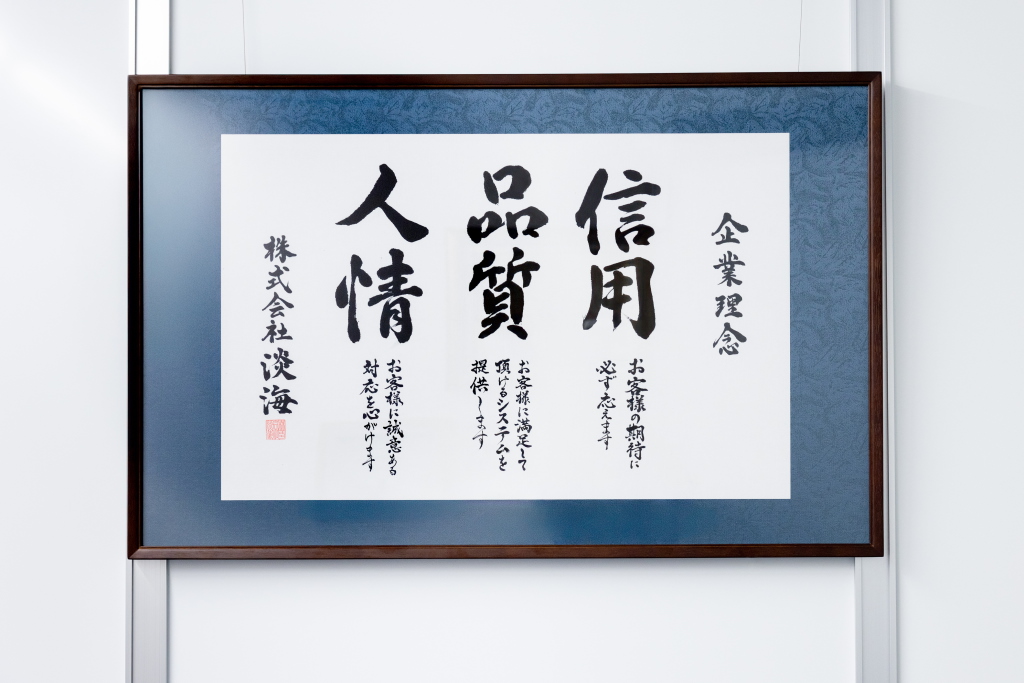 企業理念
信用
お客様の期待に
必ず応えます
品質
お客様に満足して
頂けるシステムを
提供します
人情
お客様に誠意ある
対応を心がけます
株式会社淡海